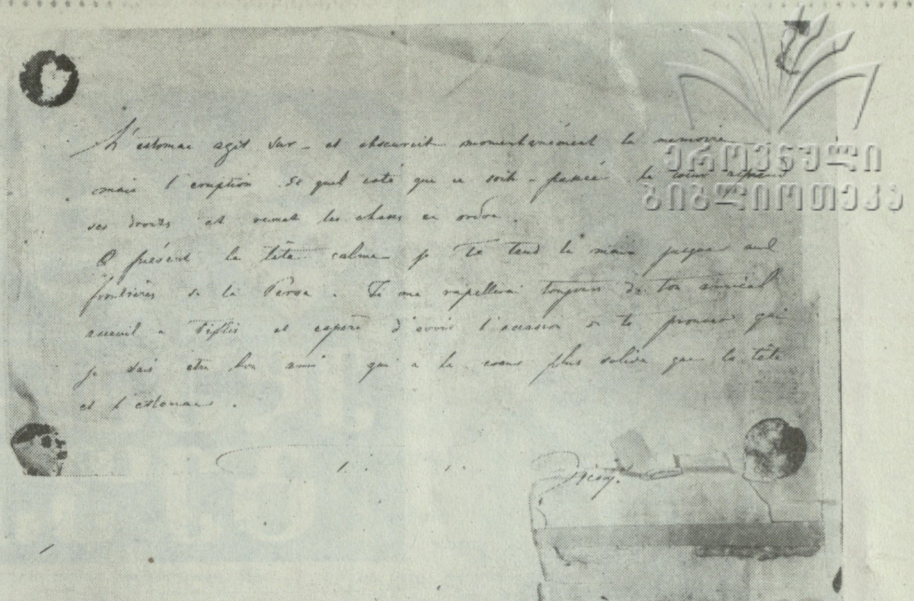 L'estomac agit sur - et obscurcit momentanément la memoire
mais l'eruption de quel coté que ce soit - passée le coeur reprend
ses droits et remet les choses en ordre.
à présent la tête calme je te tend la main jusque aux
frontières de la Perse. Je me rapellerai toujours de ton amical
accueil a Tiflis et espère d'avoir l'occasion de te prouver que
je sais etre bon ami qui a le coeur plus solide que la tête
et l'estomac.
Zichy
ეროვნული
ბიბლიოთეკა